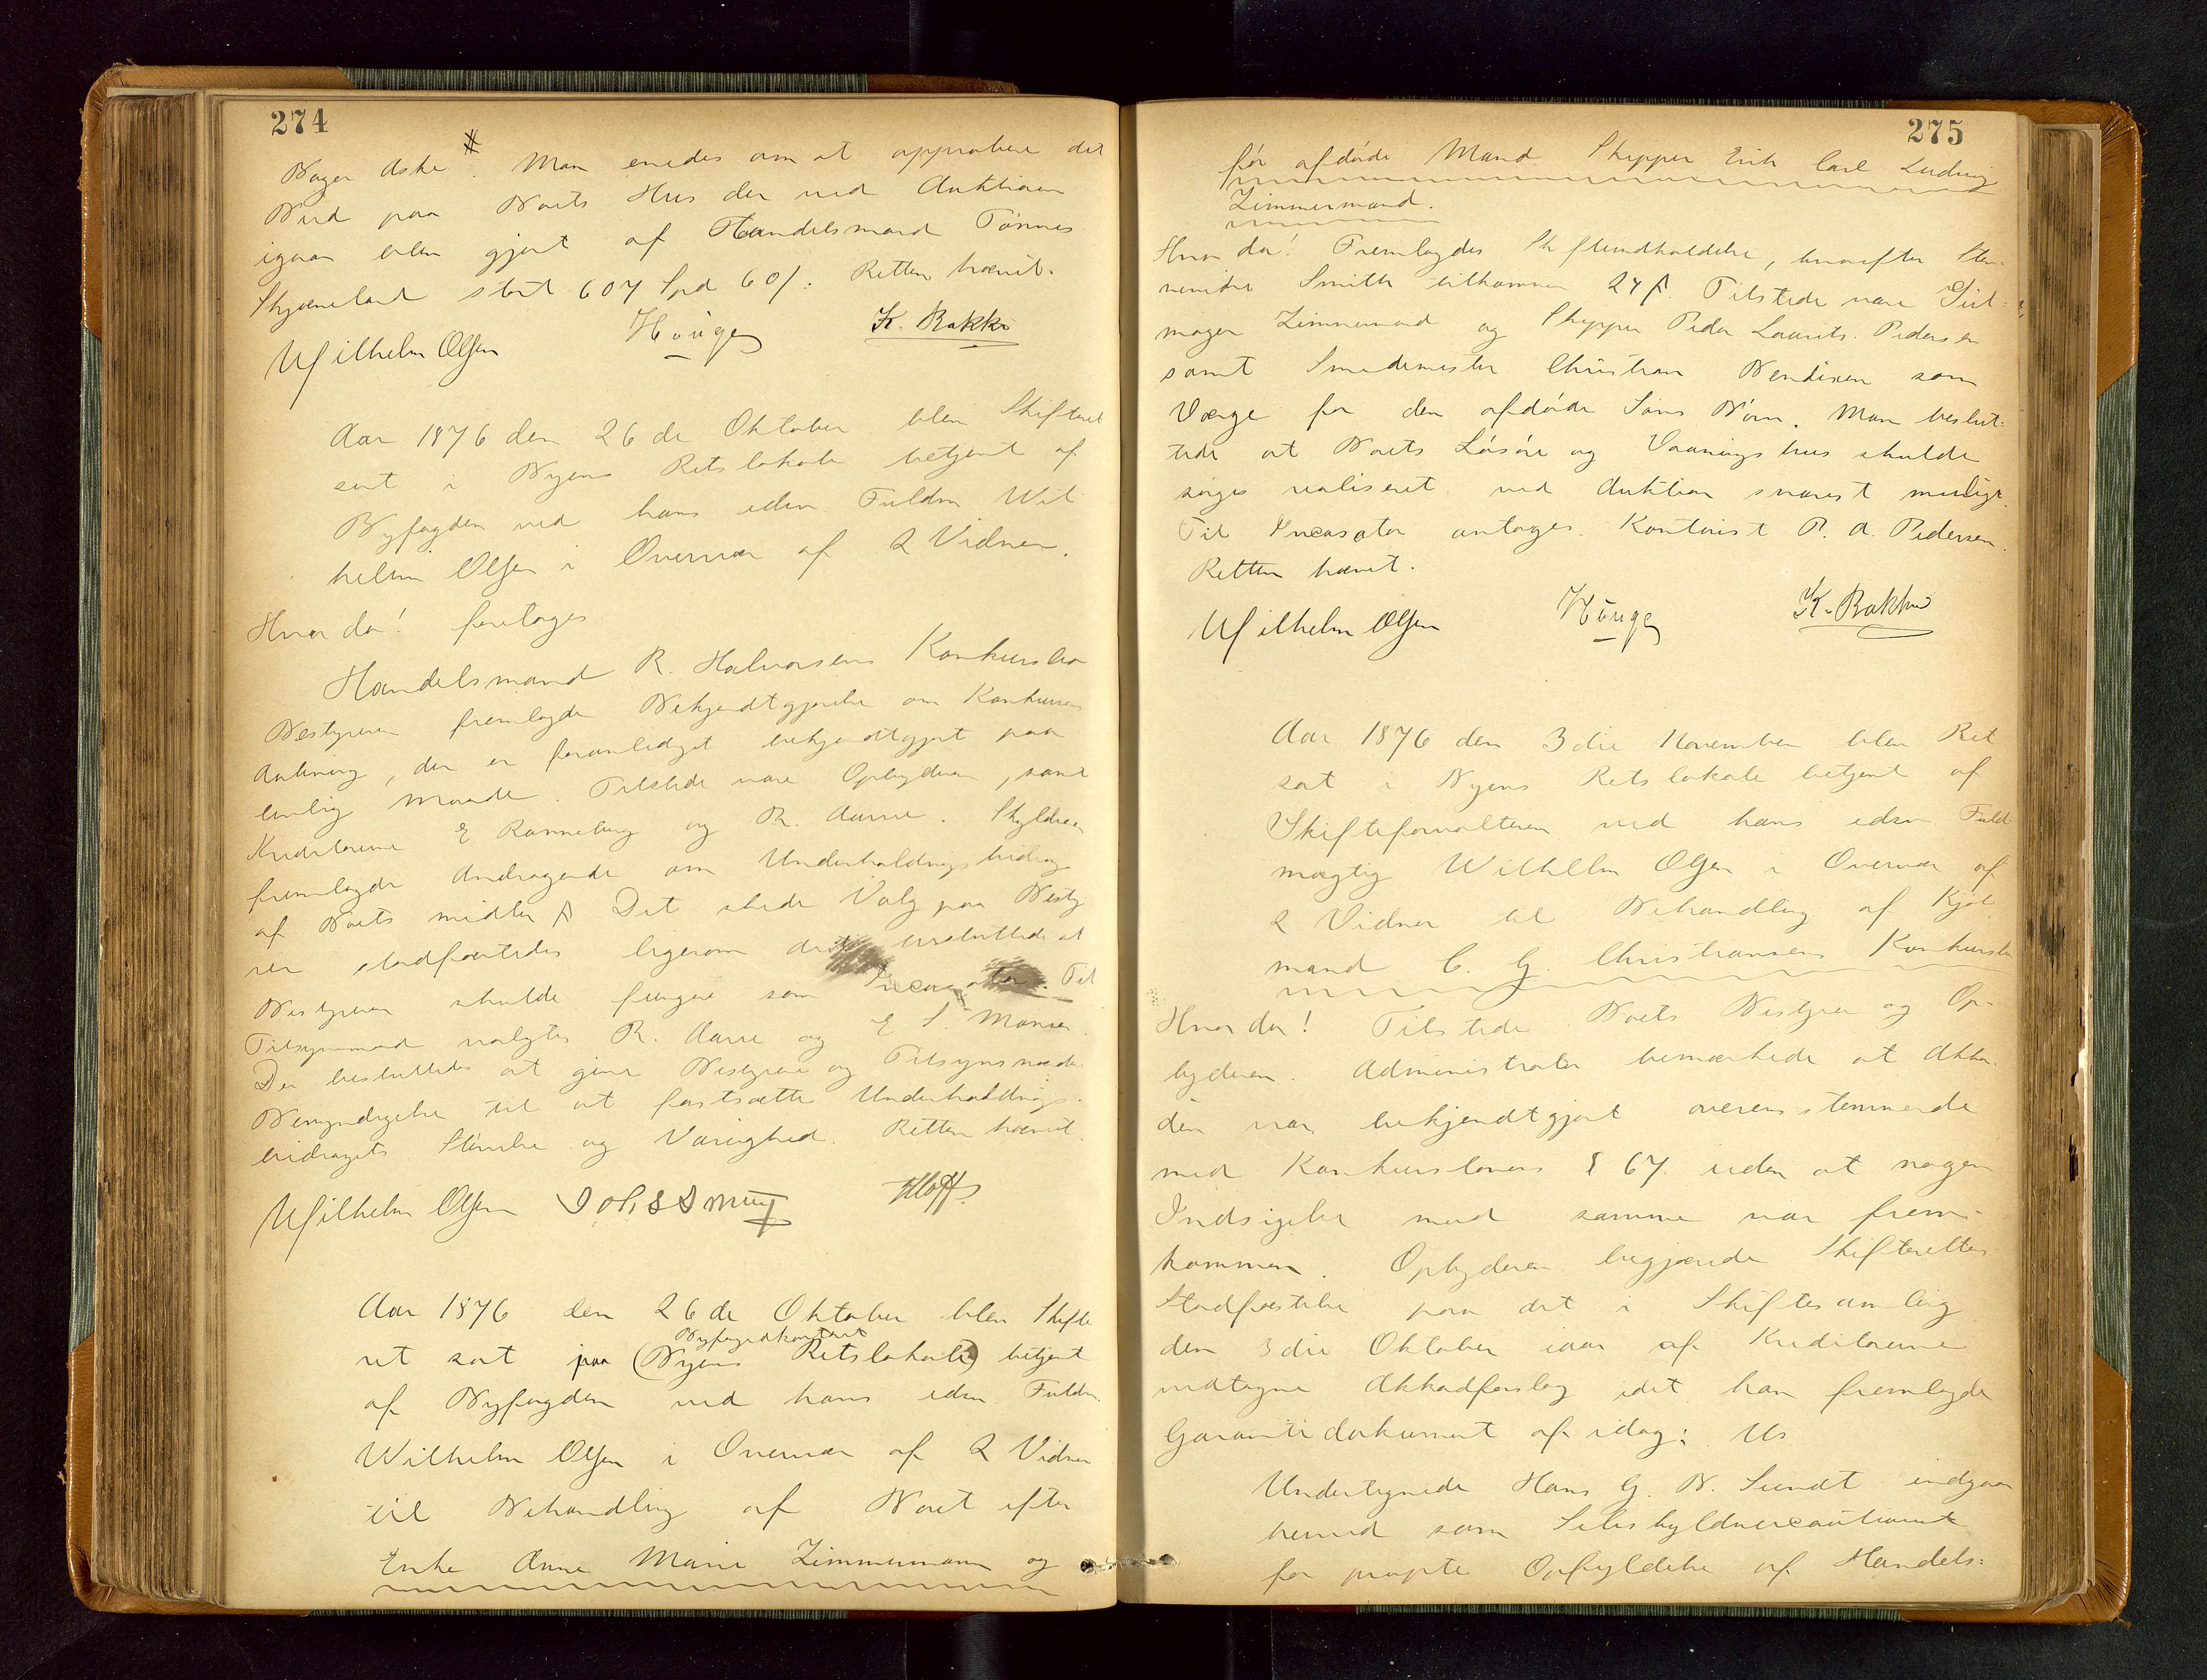 274
Bager Aske #. Man enedes om at approbere det
Bud paa Boets Hus der ved Auktionen
igaar blev gjort af Handelsmand Tønnes
Skjæveland stort 607 Spd 60 s. Retten hævet.
Wilhelm Olsen Hauge K. Bakke
Aar 1876 den 26de Oktober blev Skifteret
sat i Byens Retslokale betjent af
Byfogden ved hans edsv Fuldm. Wil
helm Olsen i Overvær af 2 Vidner.
Hvor da! foretoges
Handelsmand R. Halvorsens Konkursbo
Bestyreren fremlagde Bekjendtgjørelse om Konkursens
Aabning, der er foranlediget bekjendtgjort paa
lovlig Maade. Tilstede vare Opbyderen, samt
Kreditorerne E Ranneberg og R. Aarre. Skyldneren
fremlagde Andragende om Underholdningsbidrag
af Boets midler. Det skede Valg paa Besty
rer stadfæstedes ligesom det besluttedes at
Bestyreren skulde fungere som Incasator. Til
Tilsynsmænd valgtes R. Aarre og E S. Monsen.
Der besluttedes at give Bestyrer og Tilsynsmænd
Bemyndigelse til at fastsætte Underholdnings-
bidragets Størrelse og Varighed. Retten hævet.
Wilhelm Olsen Hoff.
Aar 1876 den 26de Oktober blev Skifte
Byfogedkontoret
ret sat paa (Byens Retslokale) betjent
af Byfogden ved hans edsv. Fuldm.
Wilhelm Olsen i Overvær af 2 Vidner
til Behandling af Boet efter
Enke Anne Marie Zimmermann og
275
før afdøde Mand Skipper Erik Carl Ludvig
Zimmermand.
Hvor da! Fremlagdes Skifteundholdelse, hvorefter Sten
Smith tilkommer 24 s. Tilstede vare Seil-
mager Zimmermand og Skipper Peder Laurits Pedersen
samt Smedemester Christian Bendixen som
Værge for den afdøde Søns Børn. Man beslut-
tede at Boets Løsøre og Vaaningshus skulde
søges realiseret ved Auktion snarest muligt.
Til Incasator antoges Kontorist P. A. Pedersen.
Retten hævet.
Wilhelm Olsen Hauge K. Bakke
Aar 1876 den 3die November blev Ret
sat i Byens Retslokale betjent af
Skifteforvalteren ved hans edsv Fuld
mægtig Wilhelm Olsen i Overvær af
2 Vidner til Behandling af Kjøb
mand C. G. Christiansens Konkursbo
Hvor da! Tilstede Boets Bestyrer og Op-
byderen. Administrator bemærkede at Akkor
den var bekjendtgjort overensstemmende
med Konkurslovens § 67 uden at nogen
Indsigelse mod samme var frem-
kommen. Opbyderen begjærede Skifterettens
Stadfæstelse paa det i Skiftesamling
den 3die Oktober iaar af Kreditorerne
vedtagne Akkordforslag idet han fremlagde
Garantidokument af idag: Us
Undertegnede Hans G. B. Sundt indgaar
herved som Selvskyldnercautionist
for prompte Opfyldelse af Handels-